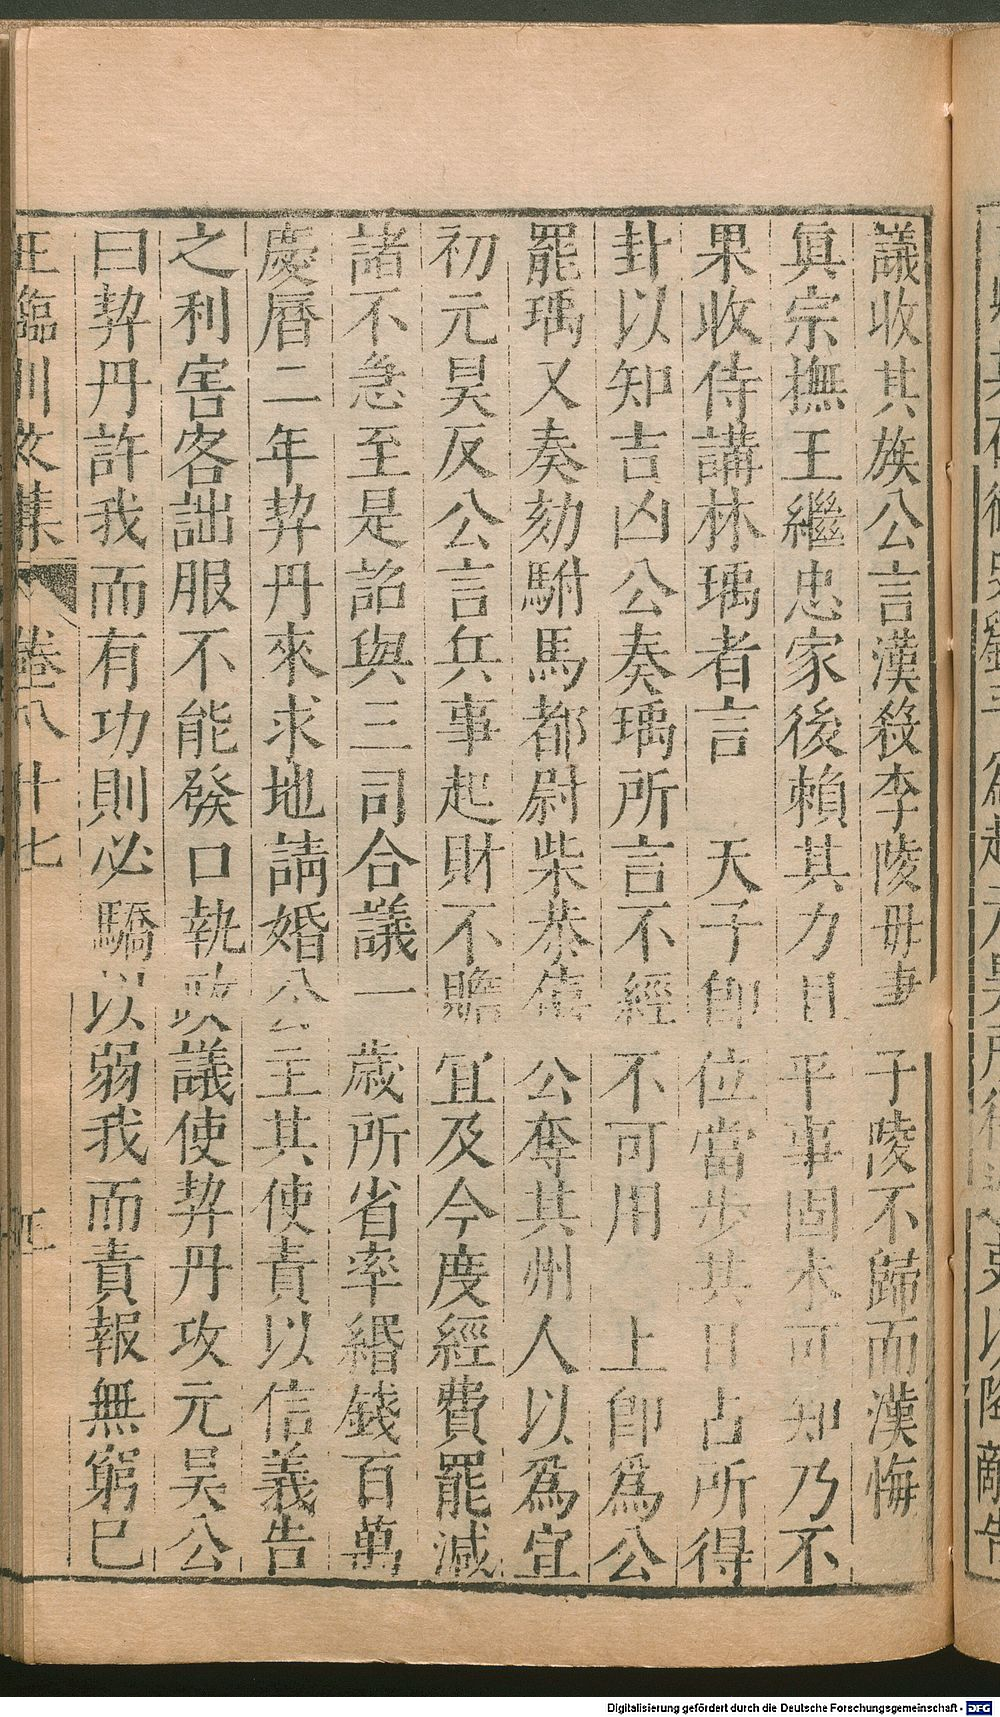 議收其族公言漢殺李陵毋妻子陵不歸而漢悔
眞宗撫王繼忠家後頼其力且平事固未可知乃不
果收侍講林瑀者言　天子卽位當步其日占所得
卦以知吉凶公奏瑀所言不經不可用　上卽爲公
罷瑀又奏劾駙馬都尉柴恭僖公奪其州人以爲宜
初元昊反公言兵事起財不贍宜及今度經費罷減
諸不急至是詔與三司合議一歲所省率緡錢百萬
慶曆二年契丹來求地請婚公主其使責以信義告
之利害客詘服不能發口執政議使契丹攻元昊公
曰契丹許我而有功則必驕以弱我而責報無窮已
王臨川文集　卷八　廿七
Digitalisierung gefördert durch die Deutsche Forschungsgemeinschaft - DFG